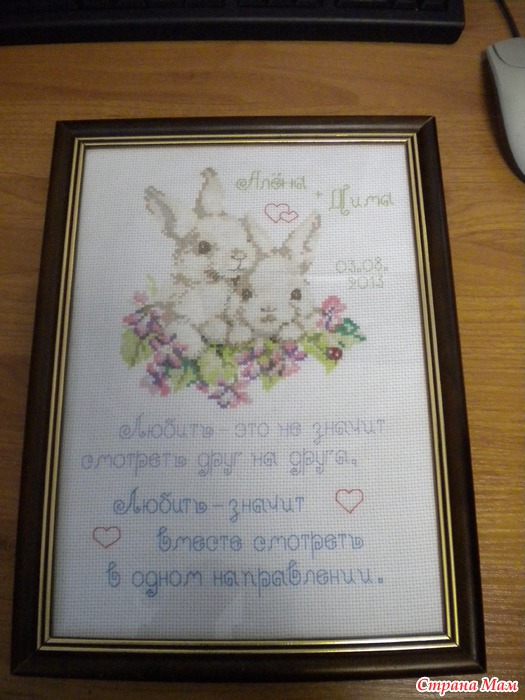 Алёна
+ Дима
03.08.
2013
Любить – это не значит
смотреть друг на друга,
Любить – значит
вместе смотреть
в одном направлении.
Страна Мам